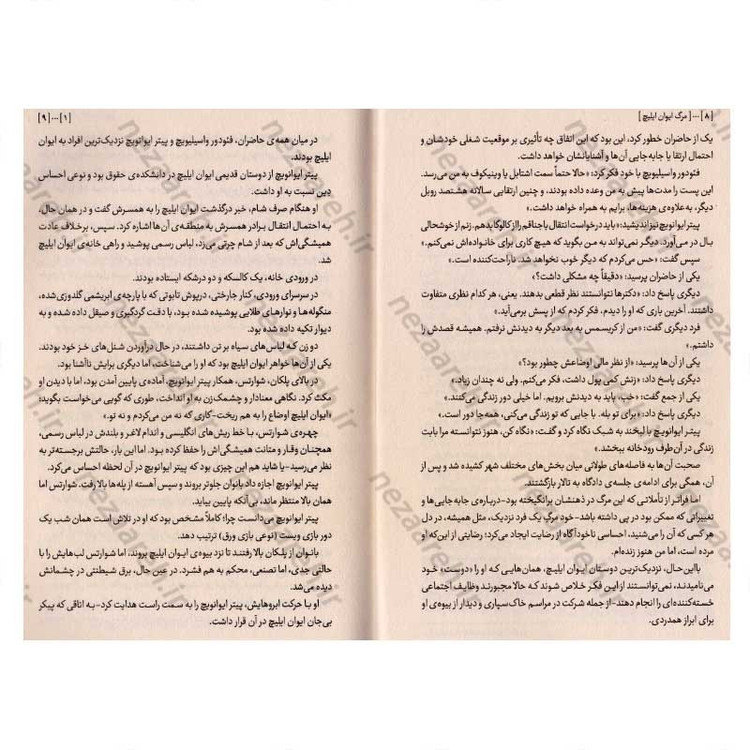 [۸] ... [مرگ ایوان ایلیچ]
یک از حاضران خطور کرد، این بود که این اتفاق چه تأثیری بر موقعیت شغلی خودشان و
احتمال ارتقا یا جابه‌جایی آن‌ها و آشنایانشان خواهد داشت.
فئودور واسیلیویچ با خود فکر کرد: «حالا حتماً سمت اشتابل یا وینیکوف به من می‌رسد.
این پست را مدت‌ها پیش به من وعده داده بودند، و چنین ارتقایی سالانه هشتصد روبل
دیگر، به‌علاوه‌ی هزینه‌ها، برایم به همراه خواهد داشت.»
پیتر ایوانویچ نیز اندیشید: «باید درخواست انتقال باجناقم را از کالوگا بدهم. زنم از خوشحالی
بال در می‌آورد. دیگر نمی‌تواند به من بگوید که هیچ کاری برای خانواده‌اش نمی‌کنم.»
سپس گفت: «حس می‌کردم که دیگر خوب نخواهد شد. ناراحت‌کننده است.»
یکی از حاضران پرسید: «دقیقاً چه مشکلی داشت؟»
دیگری پاسخ داد: «دکترها نتوانستند نظر قطعی بدهند. یعنی، هر کدام نظری متفاوت
داشتند. آخرین باری که او را دیدم، فکر کردم که از پسش برمی‌آید.»
فرد دیگری گفت: «من از کریسمس به بعد دیگر به دیدنش نرفتم. همیشه قصدش را
داشتم.»
یکی از آن‌ها پرسید: «از نظر مالی اوضاعش چطور بود؟»
دیگری پاسخ داد: «زنش کمی پول داشت، فکر می‌کنم. ولی نه چندان زیاد.»
یکی از جمع گفت: «خب، باید به دیدنش برویم. اما خیلی دور زندگی می‌کنند.»
دیگری پاسخ داد: «برای تو بله. با جایی که تو زندگی می‌کنی، همه‌جا دور است.»
پیتر ایوانویچ با لبخند به شبک نگاه کرد و گفت: «نگاه کن، هنوز نتوانسته مرا بابت
زندگی در آن‌طرف رودخانه ببخشد.»
صحبت آن‌ها به فاصله‌های طولانی میان بخش‌های مختلف شهر کشیده شد و پس از
آن، همگی برای ادامه‌ی جلسه‌ی دادگاه به تالار بازگشتند.
اما فراتر از تأملاتی که این مرگ در ذهنشان برانگیخته بود-درباره‌ی جابه‌جایی‌ها و
تغییراتی که ممکن بود در پی داشته باشد-خودِ مرگِ یک فرد نزدیک، مثل همیشه، در دل
هر کسی که آن را می‌شنید، احساسی ناخودآگاه از رضایت ایجاد می‌کرد؛ رضایتی از این‌که او
مرده است، اما من هنوز زنده‌ام.
بااین‌حال، نزدیک‌ترین دوستان ایوان ایلیچ، همان‌هایی که او را «دوست» خود
می‌نامیدند، نمی‌توانستند از این فکر خلاص شوند که حالا مجبورند وظایف اجتماعی
خسته‌کننده‌ای را انجام دهند-از جمله شرکت در مراسم خاک‌سپاری و دیدار از بیوه‌ی او
برای ابراز همدردی.
[۱] ... [۹]
در میان همه‌ی حاضران، فئودور واسیلیویچ و پیتر ایوانویچ نزدیک‌ترین افراد به ایوان
ایلیچ بودند.
پیتر ایوانویچ از دوستان قدیمی ایوان ایلیچ در دانشکده‌ی حقوق بود و نوعی احساس
دِین نسبت به او داشت.
او هنگام صرف شام، خبر درگذشت ایوان ایلیچ را به همسرش گفت و در همان حال،
به احتمال انتقال برادر همسرش به منطقه‌ی آن‌ها اشاره کرد. سپس، برخلاف عادت
همیشگی‌اش که بعد از شام چرتی می‌زد، لباس رسمی پوشید و راهی خانه‌ی ایوان ایلیچ
شد.
در ورودی خانه، یک کالسکه و دو درشکه ایستاده بودند.
در سرسرای ورودی، کنار جارختی، درپوش تابوتی که با پارچه‌ی ابریشمی گلدوزی‌شده،
منگوله‌ها و نوارهای طلایی پوشیده شده بود، با دقت گردگیری و صیقل داده شده و به
دیوار تکیه داده شده بود.
دو زن که لباس‌های سیاه بر تن داشتند، در حال درآوردن شنل‌های خز خود بودند.
یکی از آن‌ها خواهر ایوان ایلیچ بود که او را می‌شناخت، اما دیگری برایش ناآشنا بود.
در بالای پلکان، شوارتس، همکار پیتر ایوانویچ، آماده‌ی پایین آمدن بود، اما با دیدن او
مکث کرد. نگاهی معنادار و چشمک‌زن به او انداخت، طوری که گویی می‌خواست بگوید:
«ایوان ایلیچ اوضاع را به هم ریخت-کاری که نه من می‌کردم و نه تو.»
چهره‌ی شوارتس، با خط ریش‌های انگلیسی و اندام لاغر و بلندش در لباس رسمی،
همچنان وقار و متانت همیشگی‌اش را حفظ کرده بود. اما این بار، حالتش برجسته‌تر به
نظر می‌رسید-یا شاید هم این چیزی بود که پیتر ایوانویچ در آن لحظه احساس می‌کرد.
پیتر ایوانویچ اجازه داد بانوان جلوتر بروند و سپس آهسته از پله‌ها بالا رفت. شوارتس اما
همان بالا منتظر ماند، بی‌آنکه پایین بیاید.
پیتر ایوانویچ می‌دانست چرا؛ کاملاً مشخص بود که او در تلاش است همان شب یک
دور بازی ویست (نوعی بازی ورق) ترتیب دهد.
بانوان از پلکان بالا رفتند تا نزد بیوه‌ی ایوان ایلیچ بروند، اما شوارتس لب‌هایش را با
حالتی جدی، اما تصنعی، محکم به هم فشرد. در عین حال، برق شیطنتی در چشمانش
دیده می‌شد.
او با حرکت ابروهایش، پیتر ایوانویچ را به سمت راست هدایت کرد-به اتاقی که پیکر
بی‌جان ایوان ایلیچ در آن قرار داشت.
nezaareh.ir